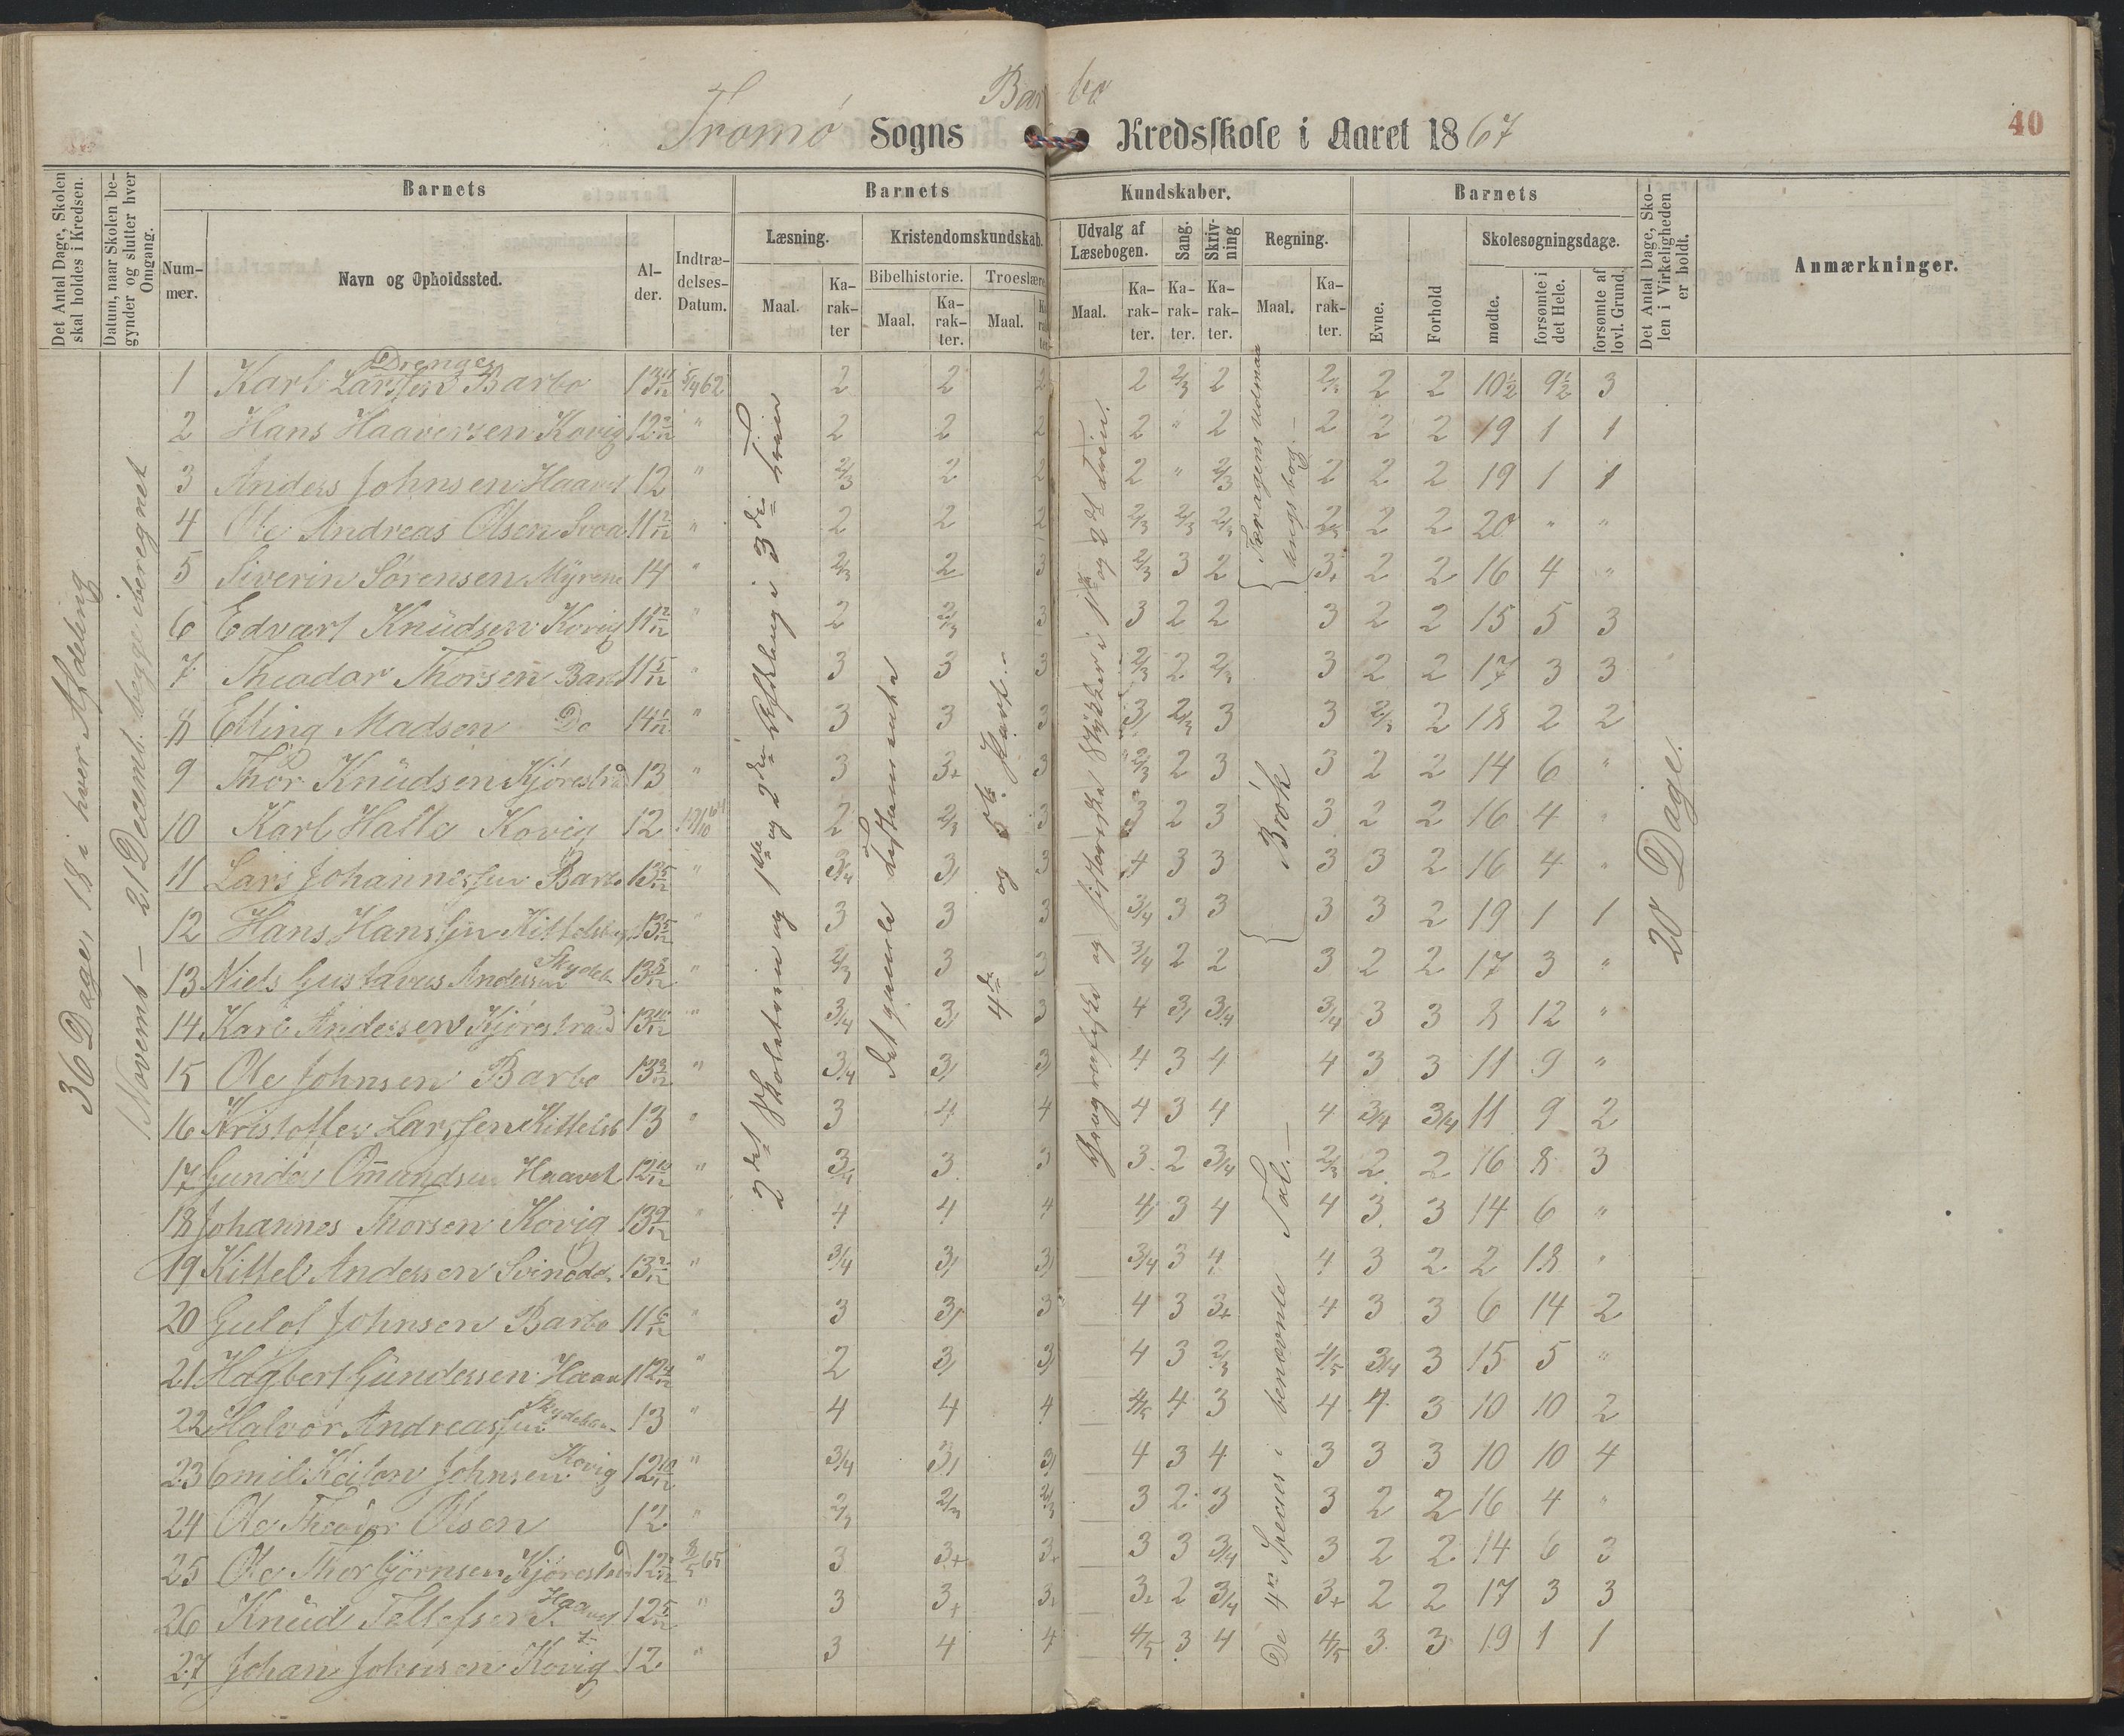 Barbo
Tromø Sogns Kredsskole i Aaret 1867
40
Det Antal Dage, Skolen skal holdes i Kredsen.
Datum, naar Skolen begynder og slutter hver Omgang.
Barnets
Barnets
Kundskaber.
Barnets
Det Antal Dage, Skolen i Virkeligheden er holdt.
Anmærkninger.
Nummer.
Navn og Opholdssted.
Alder.
Indtrædelses-Datum.
Læsning.
Kristendomskundskab.
Udvalg af Læsebogen.
Sang.
Skrivning
Regning.
Evne.
Forhold
Skolesøgningsdage.
Bibelhistorie.
Troeslære
Maal.
Karakter
Maal.
Karakter.
Maal.
Maal.
Karakter.
Karakter.
Karakter.
Maal.
Karakter.
mødte.
forsømte i det Hele.
forsømte af lovl. Grund.
36 Dage, 18 i hver Afdeling
1 Novemb – 21 Decemb. begge iberegnet
2det Skoletrin og 1ste og 2den Rækkehug i 3die Trin
det gamle Testamente
4de og 5te Part.
Geografiske og historiske Stykker i 1ste og 2det Trin.
Brøk
De 4re Species i benævnte Tal.
20 Dage.
Drenge
1 Karl Larssen Barbo 5/4 62 2 2 2 2 2/3 2 2/3 2 2 10½ 9½ 3
2 Hans Haaversen Kovig 12 " 2 2 2 2 " 2 2 2 2 19 1 1
3 Anders Johnsen Haavet 12 " 2/3 2 2 2 " 2/3 2 2 2 19 1 1
4 Ole Andreas Olsen 11 2/12 " 2 2 2 2/3 2/3 2/3 2/3 2 2 20 " "
5 Siverin Sørensen Myrene 14 " 2/3 2 3 2/3 3 2 3+ 2 2 16 4 "
6 Edvart Knüdsen Kovig " 2 2/3 3 3 2 2 3 2 2 15 5 3
7 Theodor Thorsen Barbo 11 5/12 " 3 3 3 2/3 2 2/3 3 2 2 17 3 3
8 Elling Madsen Do 14 1/12 " 3 3 3 3/ 2/3 3 3 2/3 2 18 2 2
9 Thor Knüdsen Kjørestrd 13 " 3 3+ 3 2/3 2 3 3 2 2 14 6 "
10 Karl Halle Kovig 12 12/10 64 2 2/3 3 3 2 3 3 2 2 16 4 "
11 Lars Johannessen Barbo 13 5/12 " 3/4 3/ 3 4 3 3 3 3 2 16 4 "
12 Hans Hanssen Kittelsb 13 5/12 " 3 3 3 3/4 3 3 3 3 2 19 1 1
13 Niels Gustavus Andersen Skydeb 13 " 2/3 3 3 3/4 2 2 3 2 2 17 3 "
14 Karl Andersen Kjørestrand 13 " 3/4 3/ 3 4 3/ 3/4 3/4 3 3 8 12 "
15 Ole Johnsen Barbo 13 " 3/4 3/ 3/ 4 3 4 4 3 3 11 9 "
16 Kristoffer Larssen Kittelsb 13 " 3 4 4 4 3 4 4 3/4 3/4 11 9 2
17 Gunder Omundsen Haavet 12 10/12 " 3/4 3 3 3 2 3/4 2/3 2 2 16 8 3
18 Johannes Thorsen Kovig 13 9/12 " 4 4 4 4/ 3 4 4 3 3 14 6 "
19 Kittel Andersen 13 2/12 " 3/4 3/ 3/ 3/4 3 4 4 3 2 2 18 "
20 Gulof Johnsen Barbo 11 6/12 " 3 3/ 3 4 3 3+ 4 3 3 6 14 2
21 Hagbert Gundersen Haav 12 4/12 " 2 3/ 3/ 4 3 2/3 4/5 3/4 3 15 5 "
22 Halvor Andreassen 13 " 4 4 4 4/5 4 3 4 4 3 10 10 2
23 Emil Johnsen Kovig 12 10/12 " 3/4 3/ 3/ 4 3 4 3 3 3 10 10 4
24 Ole Theodor Olsen 12 " 2/3 2/3 2/3 3 2 3 3 2 2 16 4 "
25 Ole Thorbjørnsen Kjørestrd 8/5 65 3 3+ 3+ 3 3 3/4 3 2 2 14 6 3
26 Knüd Tellefsen Haavet 12 5/12 " 3 3+ 3+ 3+ 2 3/4 3+ 2 2 17 3 3
27 Johan Johnsen Kovig 12 " 3 4 4 4/5 3 4 4/5 3 3 19 1 1